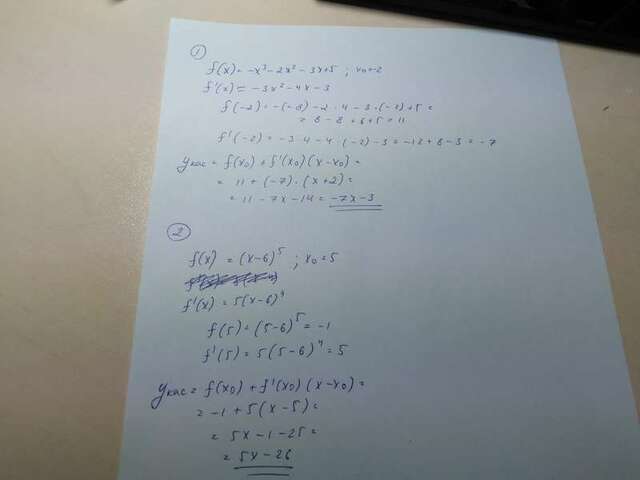 1
f(x) = -x³ - 2x² - 3x + 5 ; x₀ = -2
f'(x) = -3x² - 4x - 3
f(-2) = -(-8) - 2 · 4 - 3 · (-2) + 5 =
= 8 - 8 + 6 + 5 = 11
f'(-2) = -3 · 4 - 4 · (-2) - 3 = -12 + 8 - 3 = -7
yкас = f(x₀) + f'(x₀)(x - x₀) =
= 11 + (-7) · (x + 2) =
= 11 - 7x - 14 = -7x - 3
2
f(x) = (x - 6)⁵ ; x₀ = 5
f'(x) = 5(x - 6)⁴
f(5) = (5 - 6)⁵ = -1
f'(5) = 5(5 - 6)⁴ = 5
yкас = f(x₀) + f'(x₀)(x - x₀) =
= -1 + 5(x - 5) =
= 5x - 1 - 25 =
= 5x - 26